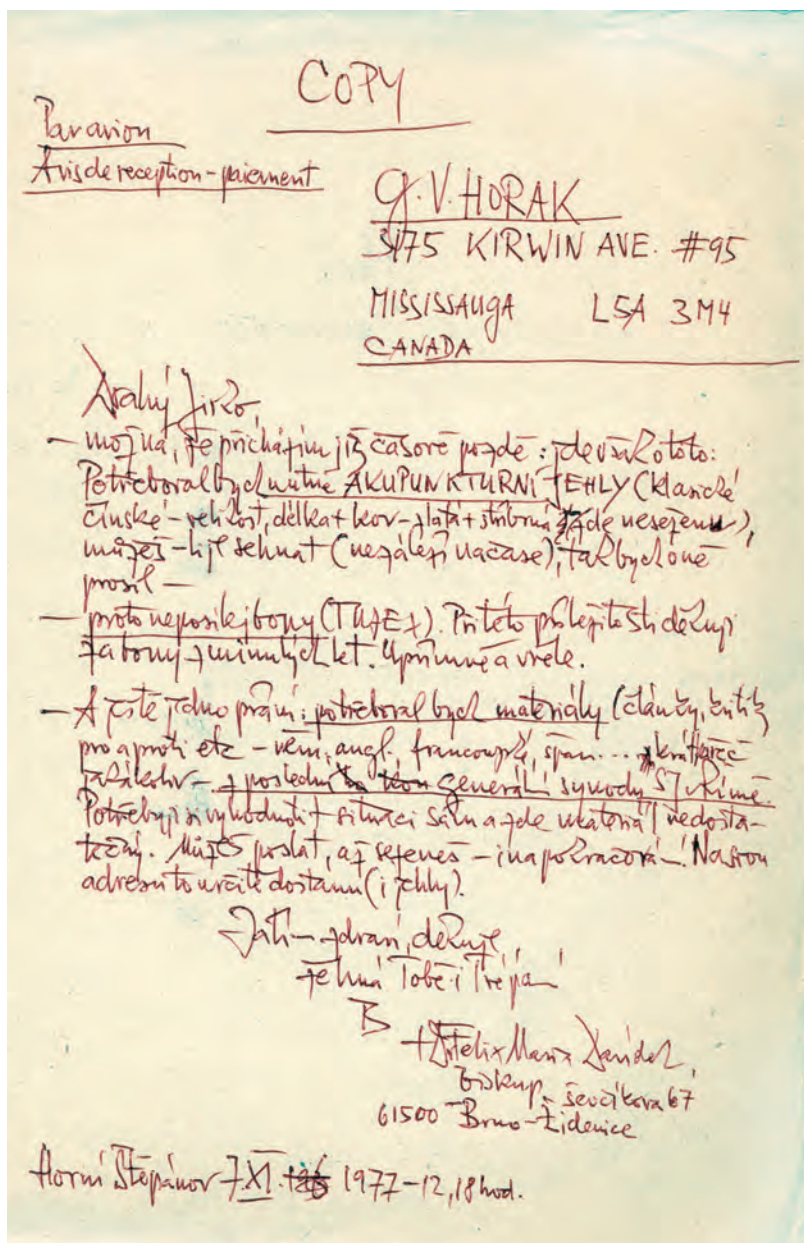 COPY
Par avion
Avis de reception - paiement
G. V. HORAK
3175 KIRWIN AVE. #95
MISSISSAUGA L5A 3M4
CANADA
Drahý Jirko,
— možná, že přicházím již časově pozdě: jde však o toto:
Potřeboval bych nutně AKUPUNKTURNÍ JEHLY (klasické
čínské - velikost, délka + kov - zlatá + stříbrná zde neseženu),
můžeš-li je sehnat (nezáleží na čase), tak bych o ně
prosil —
— proto neposílej bony (TUZEX). Při této příležitosti děkuji
za bony z minulých let. Upřímně a vřele.
— A ještě jedno přání: potřeboval bych materiály (články, kritiky
pro a proti etc - něm, angl., francouzské, špan... zkrátka řeč
jakákoliv - z poslední generální synody SJ v Římě.
Potřebuji si vyhodnotit situaci sám a zde materiál nedosta-
tečný. Můžeš poslat, až seženeš - i na pokračování. Na svou
adresu to určitě dostanu (i jehly).
zdraví, děkuje,
žehná Tobě i
B
+ Felix Maria Davídek,
biskup, Ševčíkova 67
61500 Brno-Židenice
Horní Štěpánov 7.XI. 1977 - 12,18 hod.